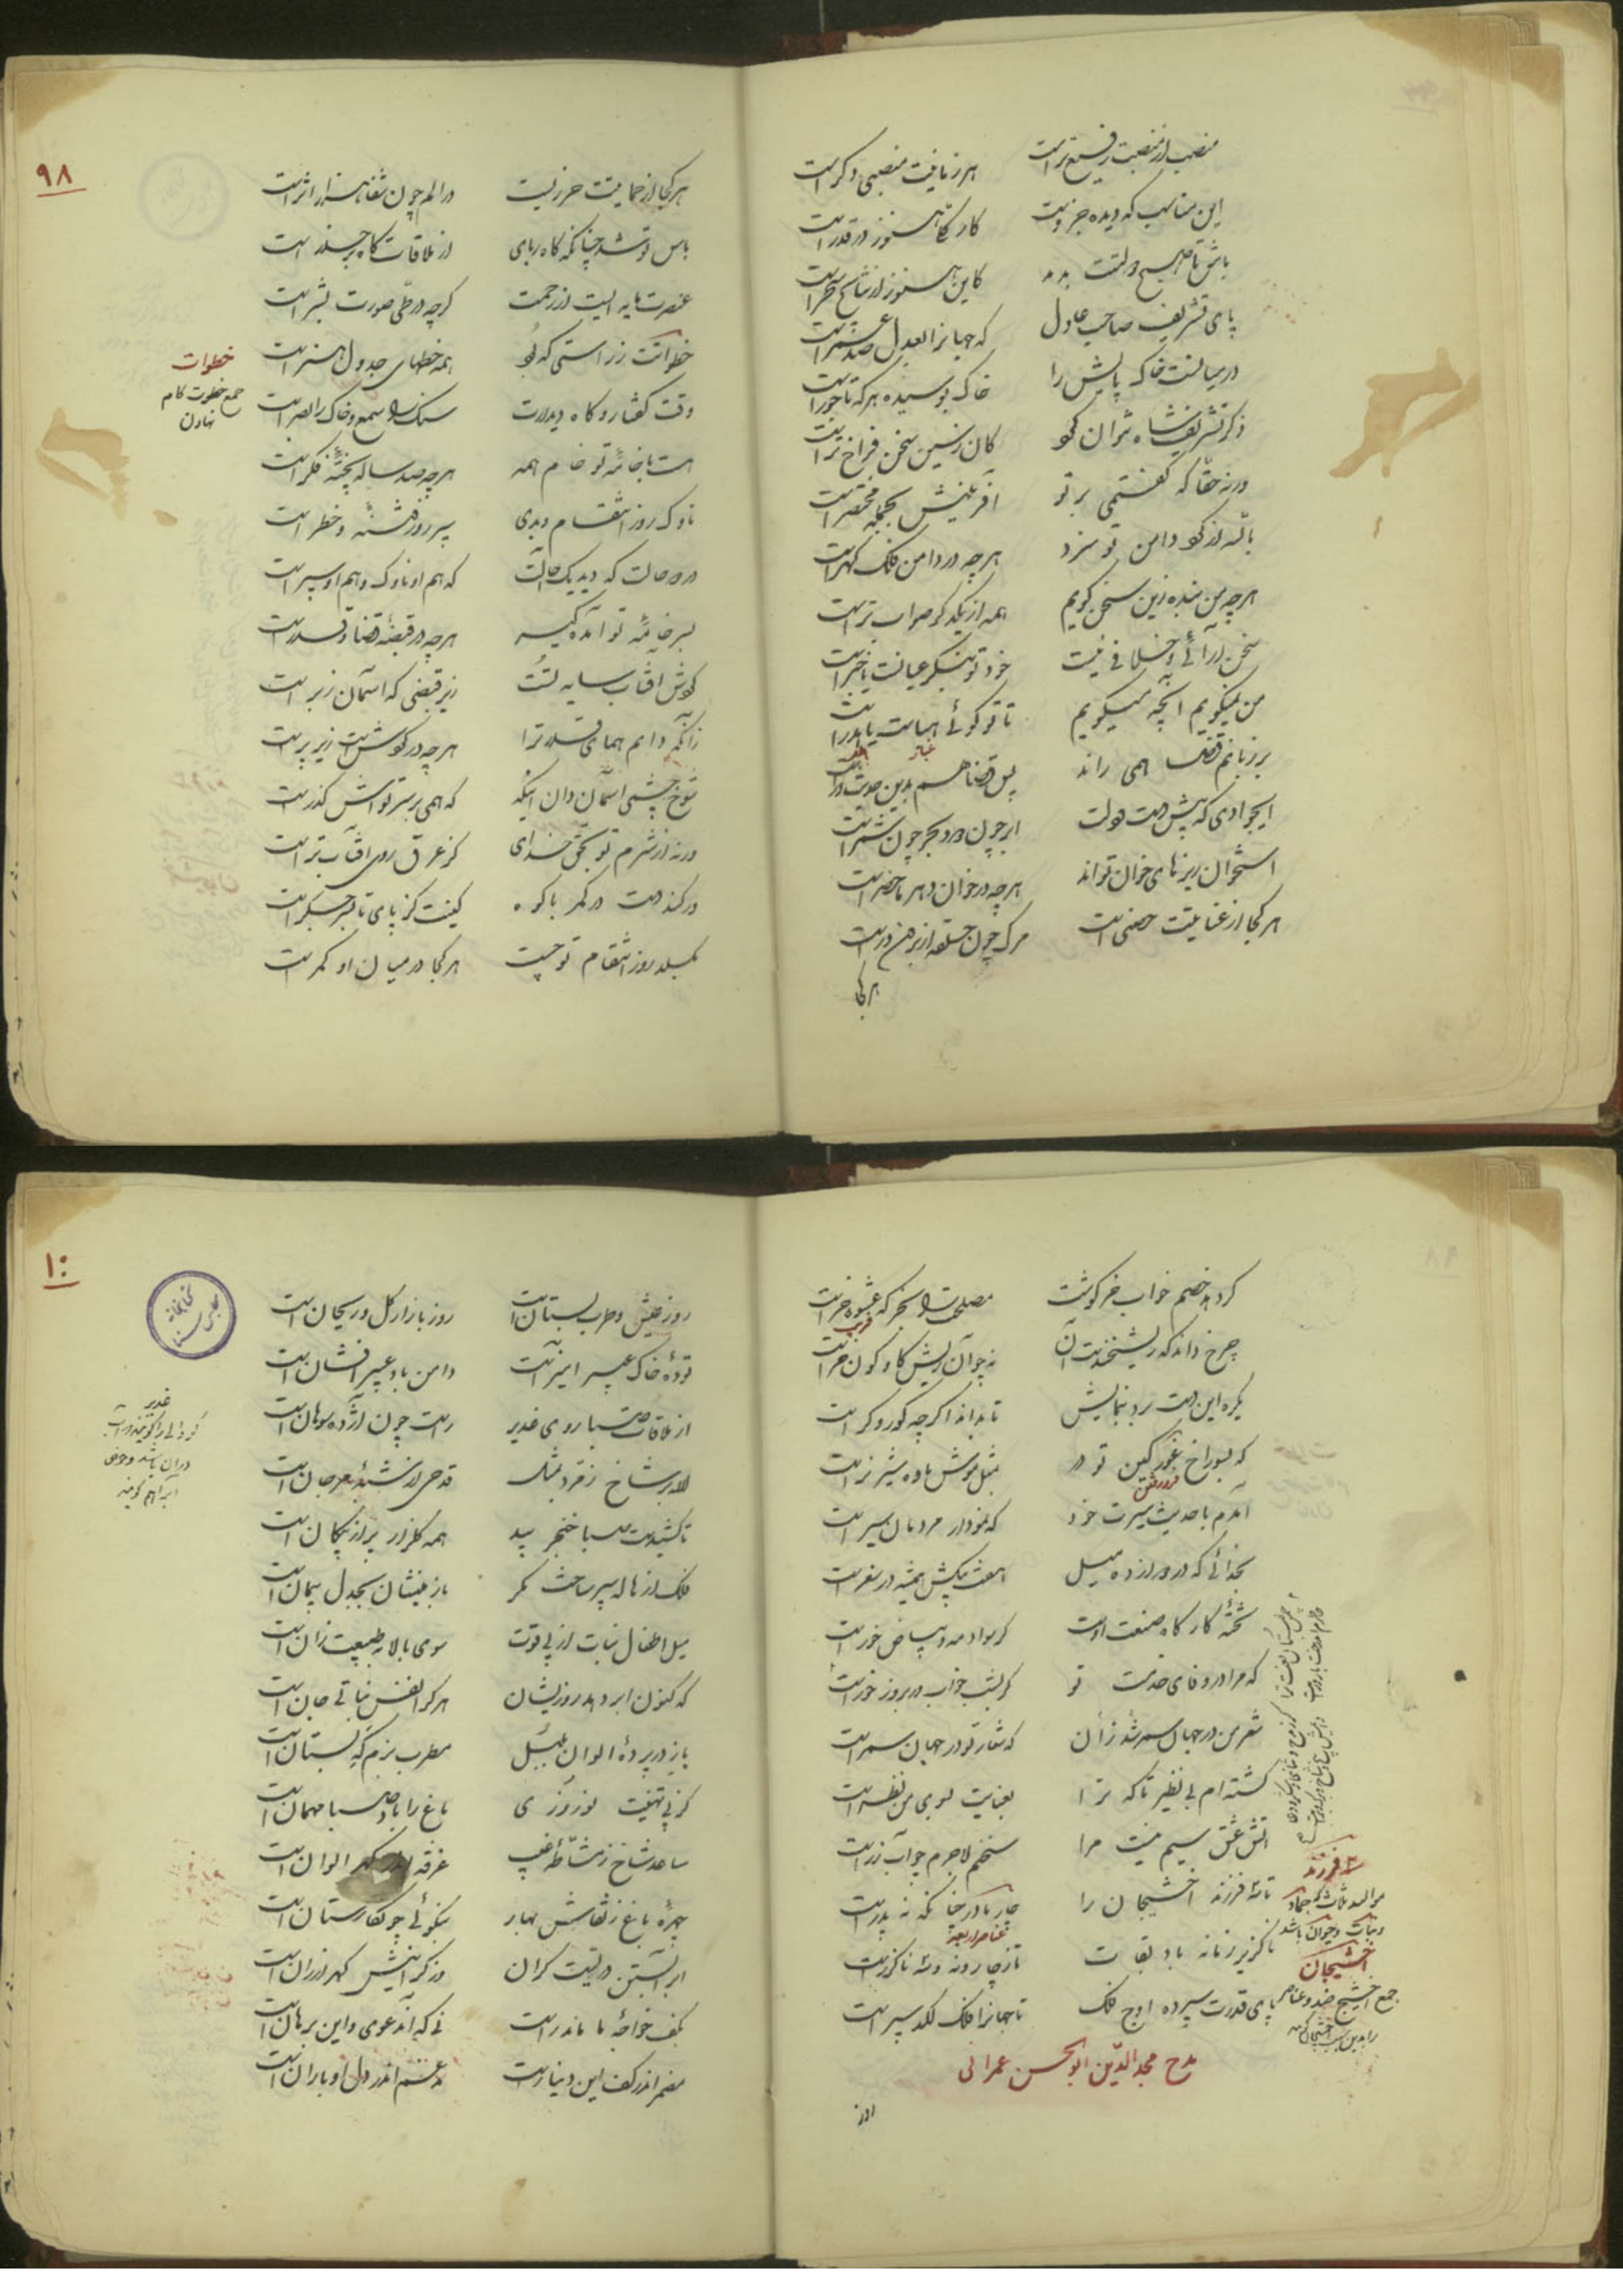 منصبت از منصبت رفیع‌تر است
هر زمانیت منصبی دگر است
این مناصب که دیده جزویست
کار کلی هنوز در قدر است
باش تا صبح دولتت بدمد
کاین هنوز از نتایج سحر است
پای تشریف صاحب عادل
که جهانرا بعدل صد عمر است
در میانست خاک پایش را
خاک بوسیده هر که تاجور است
ذکر تشریف شاه نتوان کرد
کان ز تسبیح سخن فراخ‌تر است
ورنه حقا که گفتمی بر تو
آفرینش بجمله مختصر است
بالله ار گرد دامن تو سزد
هر چه در دامن فلک گهر است
هر چه من بنده زین سخن گویم
همه از یکدگر صواب‌تر است
سخن آرائی و خلافی نیست
خود تو بنگر عیانست یا خبر است
من نمیگویم آنچه میگویم
تا تو گوئی هباست یا هدر است
بر زبانم قضا همی راند
پس قضا هم بدین حدیث در است
ای جوادی که پیش دست و دلت
ابر چون دود و بحر چون شمر است
استخوان ریزهای خوان تواند
هر چه در خوان دهر ماحضر است
هر کجا از عنایتت حصنی است
مرگ چون حلقه از برون در است
هر کجا
۹۸
هر کجا از حمایتت حرزیست
در الم چون شفا هزار اثر است
باس تو شد چنانکه کاه ربای
از ملاقات کاه بر حذر است
عنصرت مایه ایست از رحمت
گر چه در طی صورت بشر است
خطواتت ز راستی که بود
همه خطهای جدول هنر است
وقت گفتار و گاه دیدارت
سنگ را سمع و خاک را بصر است
خطوات
جمع خطوت گام
نهادن
هست با خامهٔ تو خام همه
هر چه صد ساله پختهٔ فکر است
ناوک روز انتقام و بدی
سپر روز فتنه و خطر است
در دو حالت که دید یک حالت
که هم او ناوک و هم او سپر است
بسر خامهٔ تو آمده گیر
هر چه در قبضهٔ قضا و قدر است
گوش آفتاب سایه تست
زیر قبضی که آسمان زبر است
زانکه دایم همای قدر ترا
هر چه در گوش است زیر پر است
شوخ چشمی آسمان دان اینکه
که همی بر سر تواش گذر است
ورنه از شرم تو بحق خدای
کز عرق روی آفتاب تر است
در کند دست در کمر با کوه
کینت کز پای تا بسر جگر است
بگسلد روز انتقام تو چست
هر کجا در میان او کمر است
کرده خصم خواب خرگوشت
مصلحت را بخر که عشوه خر است
چرخ داند که ریشخندست آن
نه چو آن ریش گاو کون خر است
یکره این دستبرد بنمایش
تا بداند اگر چه کور و کر است
که بسوراخ غور کین تو در
بمثل موش ماده شیر نر است
آمدم با حدیث سیرت خود
که نمودار مردمان سیر است
بخدائی که در دوازده میل
هفت پیکش همیشه در سفر است
تختهٔ کارگاه صنعت اوست
گر سواد مه و بیاض خور است
که مرا در وفای خدمت تو
گر بشب خواب و گر بروز خور است
شعر من در جهان سمر شد زان
که شعار تو در جهان سمر است
گشته‌ام بی نظیر تا که ترا
بعنایت بسوی من نظر است
آتش عشق سیم نیست مرا
سخنم لاجرم چو آب زر است
تا سه فرزند آخشیجان را
چار مادر چنانکه نه پدر است
عناصر اربعه
ناگزیر زمانه باد بقات
تا ز چار و نه و سه ناگزر است
پای قدرت سپرده اوج فلک
تا جهانرا فلک لگد سپر است
سه فرزند
موالید ثلاث که جماد
و نبات و حیوان باشد
آخشیجان
جمع آخشیج ضد و عناصر
را بدین سبب آخشیجان گویند
مدح مجد الدین ابو الحسن عمرانی
روز
۱۰۰
روز عیش و طرب بستان است
روز بازار گل و ریحان است
تودهٔ خاک عبیر آمیز است
دامن باد عبیر افشان است
از ملاقات صبا روی غدیر
راست چون آژدهٔ سوهان است
غدیر
لاله بر شاخ زمرد بمثل
قدحی از شبه و مرجان است
تا کشیدست صبا خنجر بید
همه گلزار پر از پیکان است
فلک از هاله سپر ساخت مگر
باز مینشان بجدل پیمان است
میل اطفال نبات از پی قوت
سوی بالا به طبیعت زان است
که کنون ابر دهد روزیشان
هر کرا نفس نباتی جان است
باز در پردهٔ الوان بلبل
مطرب بزمگه بستان است
کز پی تهنیت نوروزی
باغ را باد صبا مهمان است
ساعد شاخ ز مشاطهٔ غیب
غرقه اندر گهر الوان است
چهرهٔ باغ ز نقاش بهار
بنکوئی چو نگارستان است
ابر آبستن دریست گران
وز گرانیش گهر ارزان است
بکف خواجهٔ ما ماند راست
نی که آن دعوی و این برهان است
مضمر اندر کف این دینار است
مدغم اندر دل او باران است